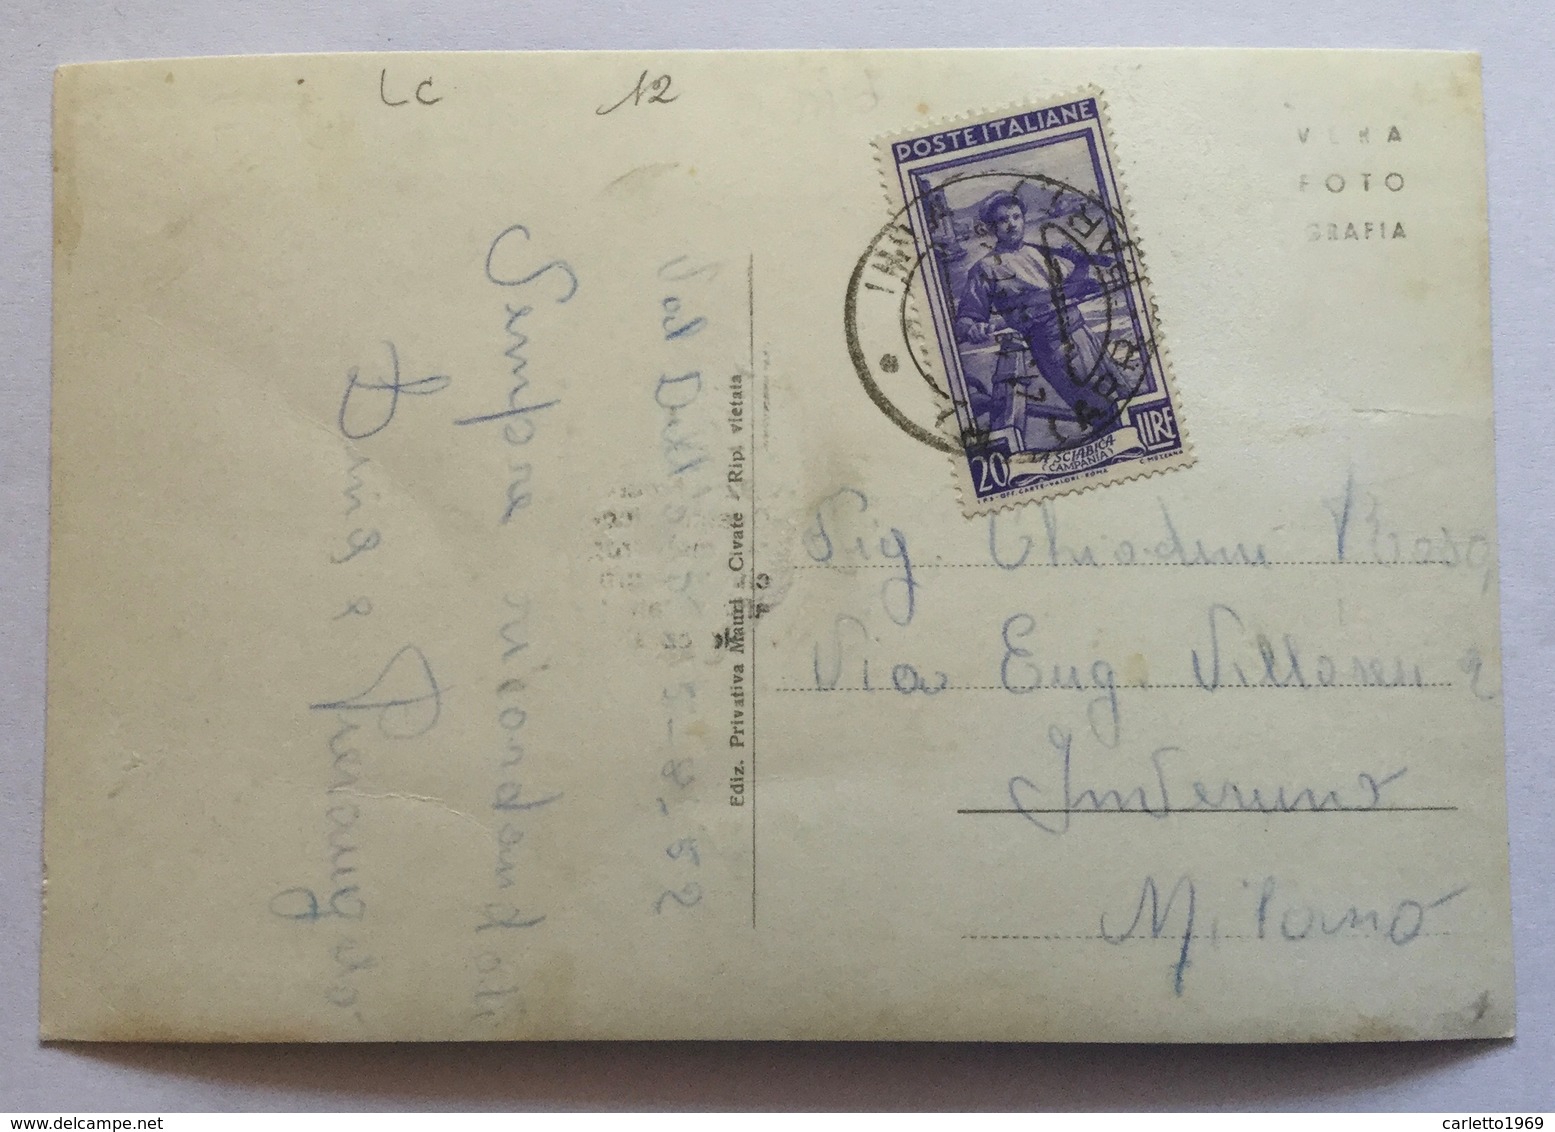 LC 12
VERA
FOTO
GRAFIA
POSTE ITALIANE
20 LIRE
LA SCIABICA
(CAMPANIA)
I.P.S. OFF. CARTE-VALORI-ROMA C. MEZZANA
Ediz. Privativa Mauri - Civate - Ripr. vietata
15-8-52
Sempre ricordandoti
Dina e Pierangelo
Sig.
Via Eug. Villoresi 2
Inveruno
Milano
delcampe.net
carletto1969